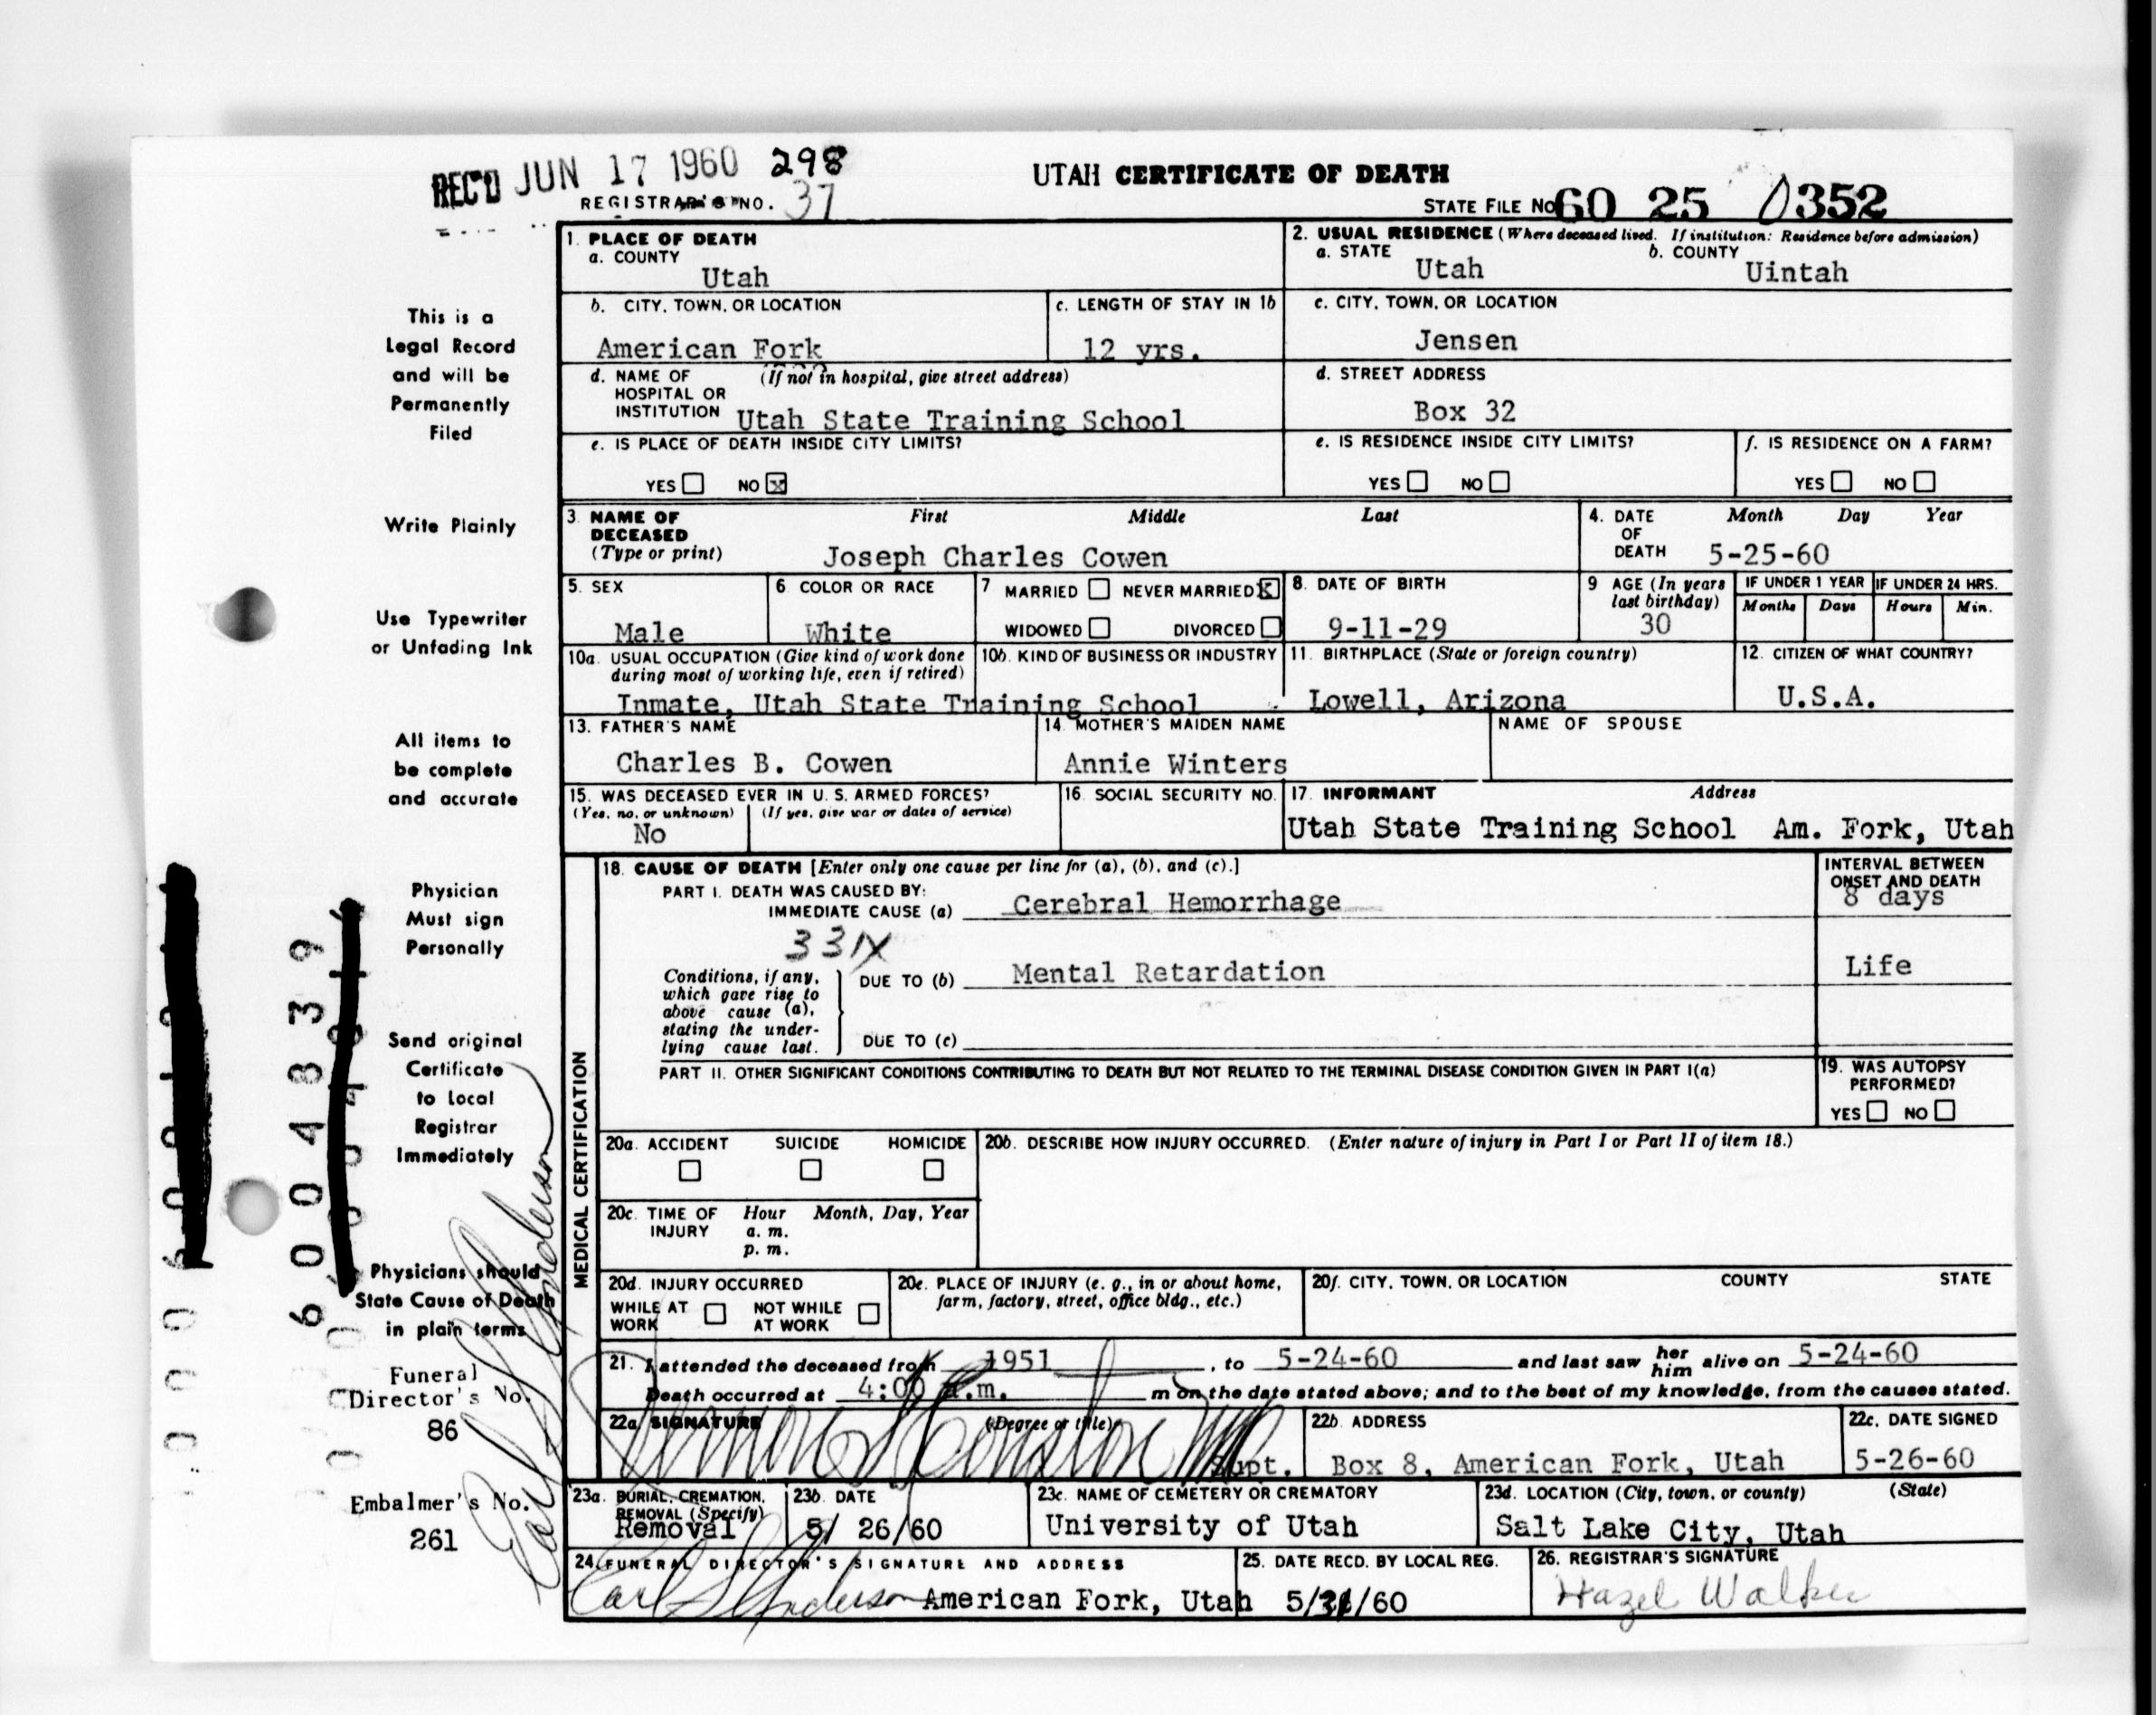 REC'D JUN 17 1960 298
UTAH CERTIFICATE OF DEATH
REGISTRAR'S NO. 37
STATE FILE No 60 25 0352
1. PLACE OF DEATH
a. COUNTY
Utah
2. USUAL RESIDENCE (Where deceased lived. If institution: Residence before admission)
a. STATE Utah b. COUNTY Uintah
b. CITY, TOWN, OR LOCATION
American Fork
c. LENGTH OF STAY IN 1b
12 yrs.
c. CITY, TOWN, OR LOCATION
Jensen
d. NAME OF (If not in hospital, give street address)
HOSPITAL OR
INSTITUTION Utah State Training School
d. STREET ADDRESS
Box 32
e. IS PLACE OF DEATH INSIDE CITY LIMITS?
YES NO X
e. IS RESIDENCE INSIDE CITY LIMITS?
YES NO
f. IS RESIDENCE ON A FARM?
YES NO
3. NAME OF DECEASED (Type or print) First Middle Last
Joseph Charles Cowen
4. DATE OF DEATH Month Day Year
5-25-60
5. SEX
Male
6 COLOR OR RACE
White
7 MARRIED NEVER MARRIED X
WIDOWED DIVORCED
8. DATE OF BIRTH
9-11-29
9 AGE (In years last birthday)
30
IF UNDER 1 YEAR IF UNDER 24 HRS.
Months Days Hours Min.
10a. USUAL OCCUPATION (Give kind of work done
during most of working life, even if retired)
10b. KIND OF BUSINESS OR INDUSTRY
Inmate, Utah State Training School
11. BIRTHPLACE (State or foreign country)
Lowell, Arizona
12. CITIZEN OF WHAT COUNTRY?
U.S.A.
13. FATHER'S NAME
Charles B. Cowen
14. MOTHER'S MAIDEN NAME
Annie Winters
NAME OF SPOUSE
15. WAS DECEASED EVER IN U. S. ARMED FORCES?
(Yes, no, or unknown) (If yes, give war or dates of service)
No
16. SOCIAL SECURITY NO.
17. INFORMANT Address
Utah State Training School Am. Fork, Utah
MEDICAL CERTIFICATION
18. CAUSE OF DEATH [Enter only one cause per line for (a), (b), and (c).]
INTERVAL BETWEEN
ONSET AND DEATH
PART I. DEATH WAS CAUSED BY:
IMMEDIATE CAUSE (a) Cerebral Hemorrhage
8 days
331X
Conditions, if any,
which gave rise to
above cause (a),
stating the under-
lying cause last.
DUE TO (b) Mental Retardation
Life
DUE TO (c)
PART II. OTHER SIGNIFICANT CONDITIONS CONTRIBUTING TO DEATH BUT NOT RELATED TO THE TERMINAL DISEASE CONDITION GIVEN IN PART I(a)
19. WAS AUTOPSY
PERFORMED?
YES NO
20a. ACCIDENT SUICIDE HOMICIDE
20b. DESCRIBE HOW INJURY OCCURRED. (Enter nature of injury in Part I or Part II of item 18.)
20c. TIME OF INJURY Hour Month, Day, Year
a. m.
p. m.
20d. INJURY OCCURRED
WHILE AT WORK NOT WHILE AT WORK
20e. PLACE OF INJURY (e. g., in or about home,
farm, factory, street, office bldg., etc.)
20f. CITY, TOWN, OR LOCATION COUNTY STATE
21. I attended the deceased from 1951, to 5-24-60 and last saw her him alive on 5-24-60
Death occurred at 4:00 .m. m on the date stated above; and to the best of my knowledge, from the causes stated.
22a SIGNATURE (Degree or title)
Supt.
22b. ADDRESS
Box 8, American Fork, Utah
22c. DATE SIGNED
5-26-60
23a. BURIAL, CREMATION,
REMOVAL (Specify)
Removal
23b. DATE
5/ 26/60
23c. NAME OF CEMETERY OR CREMATORY
University of Utah
23d. LOCATION (City, town, or county) (State)
Salt Lake City, Utah
24. FUNERAL DIRECTOR'S SIGNATURE AND ADDRESS
Anderson American Fork, Utah
25. DATE RECD. BY LOCAL REG.
5/31/60
26. REGISTRAR'S SIGNATURE
Hazel Walker
This is a
Legal Record
and will be
Permanently
Filed
Write Plainly
Use Typewriter
or Unfading Ink
All items to
be complete
and accurate
Physician
Must sign
Personally
Send original
Certificate
to Local
Registrar
Immediately
Physicians should
State Cause of Death
in plain terms
Funeral
Director's No.
86
Embalmer's No.
261
Anderson
6004839